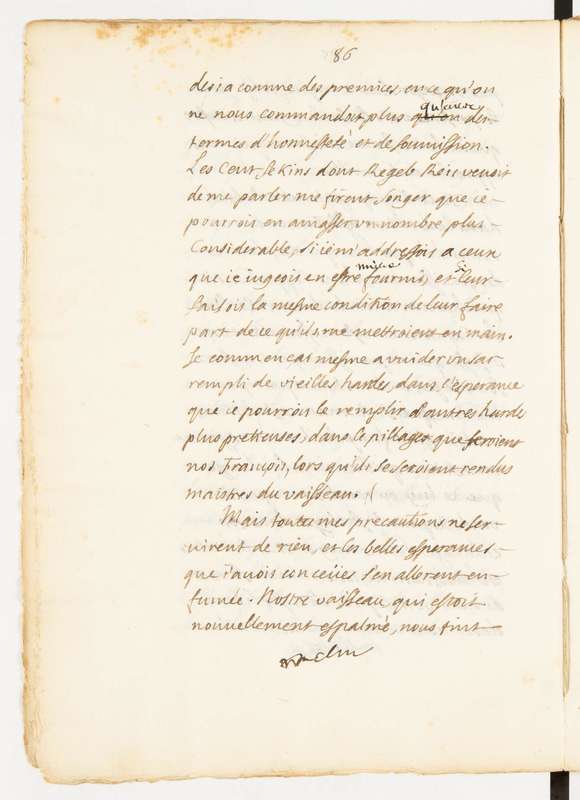 86
desia comme des premices, en ce qu'on
ne nous commandoit plus qu'avec des
termes d'honnesteté et de soumission.
Les Cent Sekins dont Regeb Reis venoit
de me parler me firent songer que ie
pourrois en amasser un nombre plus
Considerable, si ie m'addressois a ceux
que ie iugeois en estre mieux fournis, et si leur
faisois la mesme condition de leur faire
part de ce qu'ils me mettroient en main.
Je commencai mesme a vuider un sac
rempli de vieilles hardes, dans l'esperance
que ie pourrois le remplir d'autres hardes
plus pretieuses, dans le pillage que feroient
nos François, lors qu'ils se seroient rendus
maistres du vaisseau.
Mais toutes mes precautions ne ser-
virent de rien, et les belles esperances
que i'avois conceües s'en allerent en
fumée. Nostre vaisseau qui estoit
nouvellement espalmé, nous fuit